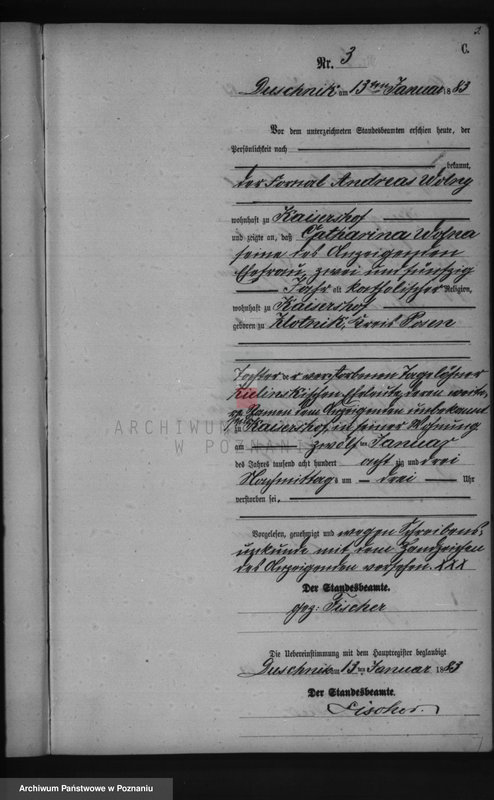 2
C.
Nr. 3
Duschnik am 13ten Januar 1883
Vor dem unterzeichneten Standesbeamten erschien heute, der
Persönlichkeit nach
bekannt,
der Fornal Andreas Wolny
wohnhaft zu Kaisershof
und zeigte an, daß Catharina Wolna
seine des Anzeigenden
Ehefrau, zwei und fünfzig
Jahr alt katholischer Religion,
wohnhaft zu Kaisershof
geboren zu Klotnik, Kreis Posen
Tochter der verstorbenen Tagelöhner
Kulinskischen Eheleute, deren weite-
re Namen dem Anzeigenden unbekannt
zu Kaisershof in seiner Wohnung
am zwölften Januar
des Jahres tausend acht hundert acht zig und drei
Nachmittags um drei Uhr
verstorben sei,
Vorgelesen, genehmigt und wegen Schreibens-
unkunde mit dem Handzeichen
des Anzeigenden versehen. XXX
Der Standesbeamte.
gez: Fischer
Die Uebereinstimmung mit dem Hauptregister beglaubigt
Duschnik am 13ten Januar 1883
Der Standesbeamte.
Fischer.
ARCHIWUM
W POZNANIU
Archiwum Państwowe w Poznaniu